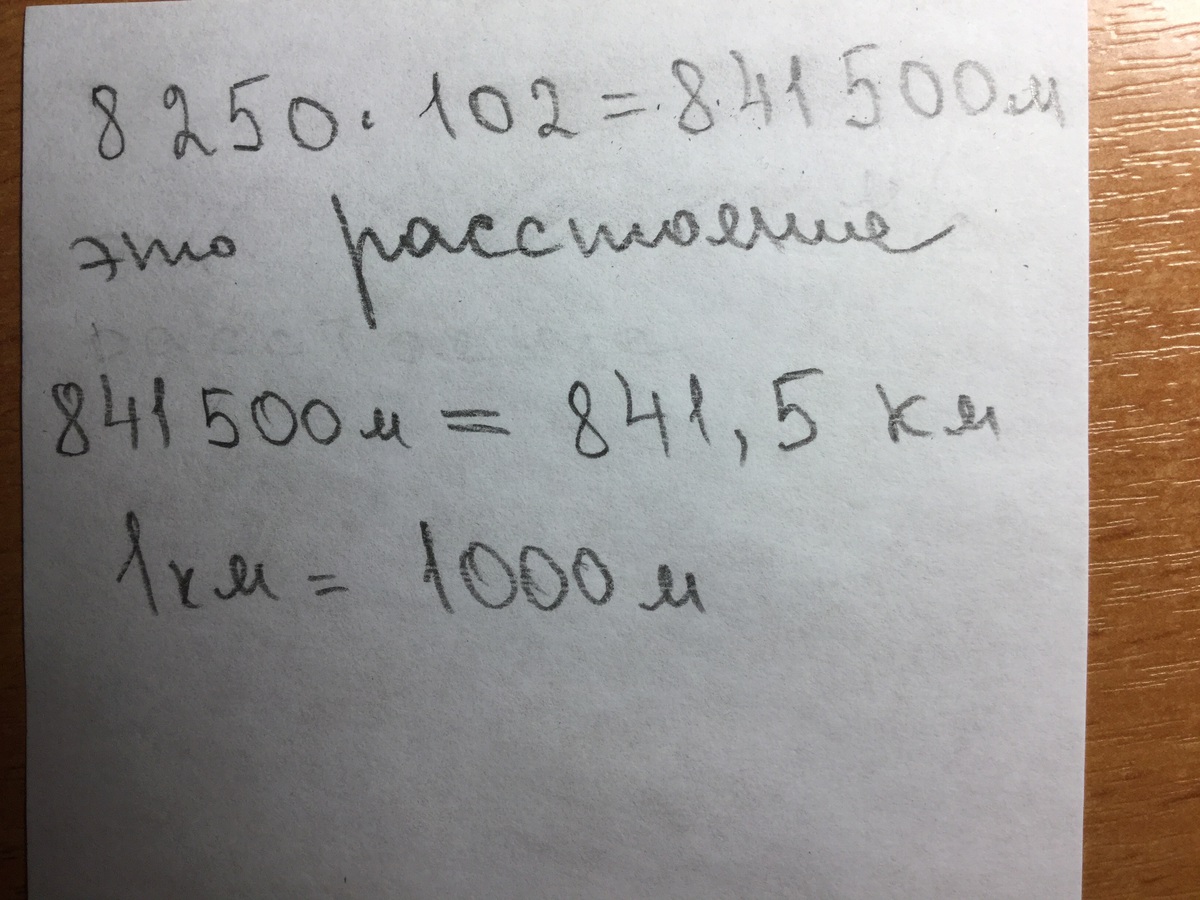 8250 · 102 = 841 500 м
это расстояние
расстояние
841 500 м = 841,5 км
1 км = 1000 м